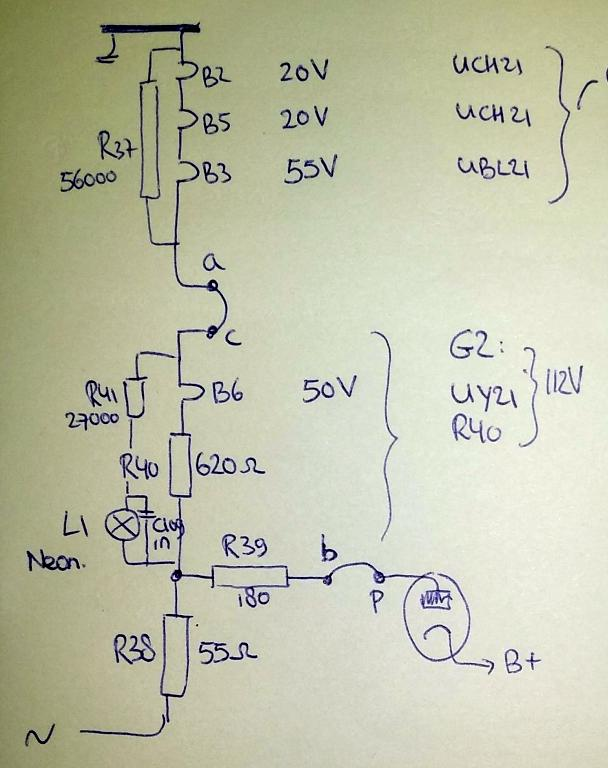 B2 20V UCH21
B5 20V UCH21
R37
56000
B3 55V UBL21
a
c
G2:
R41
27000
B6 50V
UY21
112V
R40
R40 620Ω
L1
C109
1n
Neon.
R39
180
b
P
R38 55Ω
B+
~